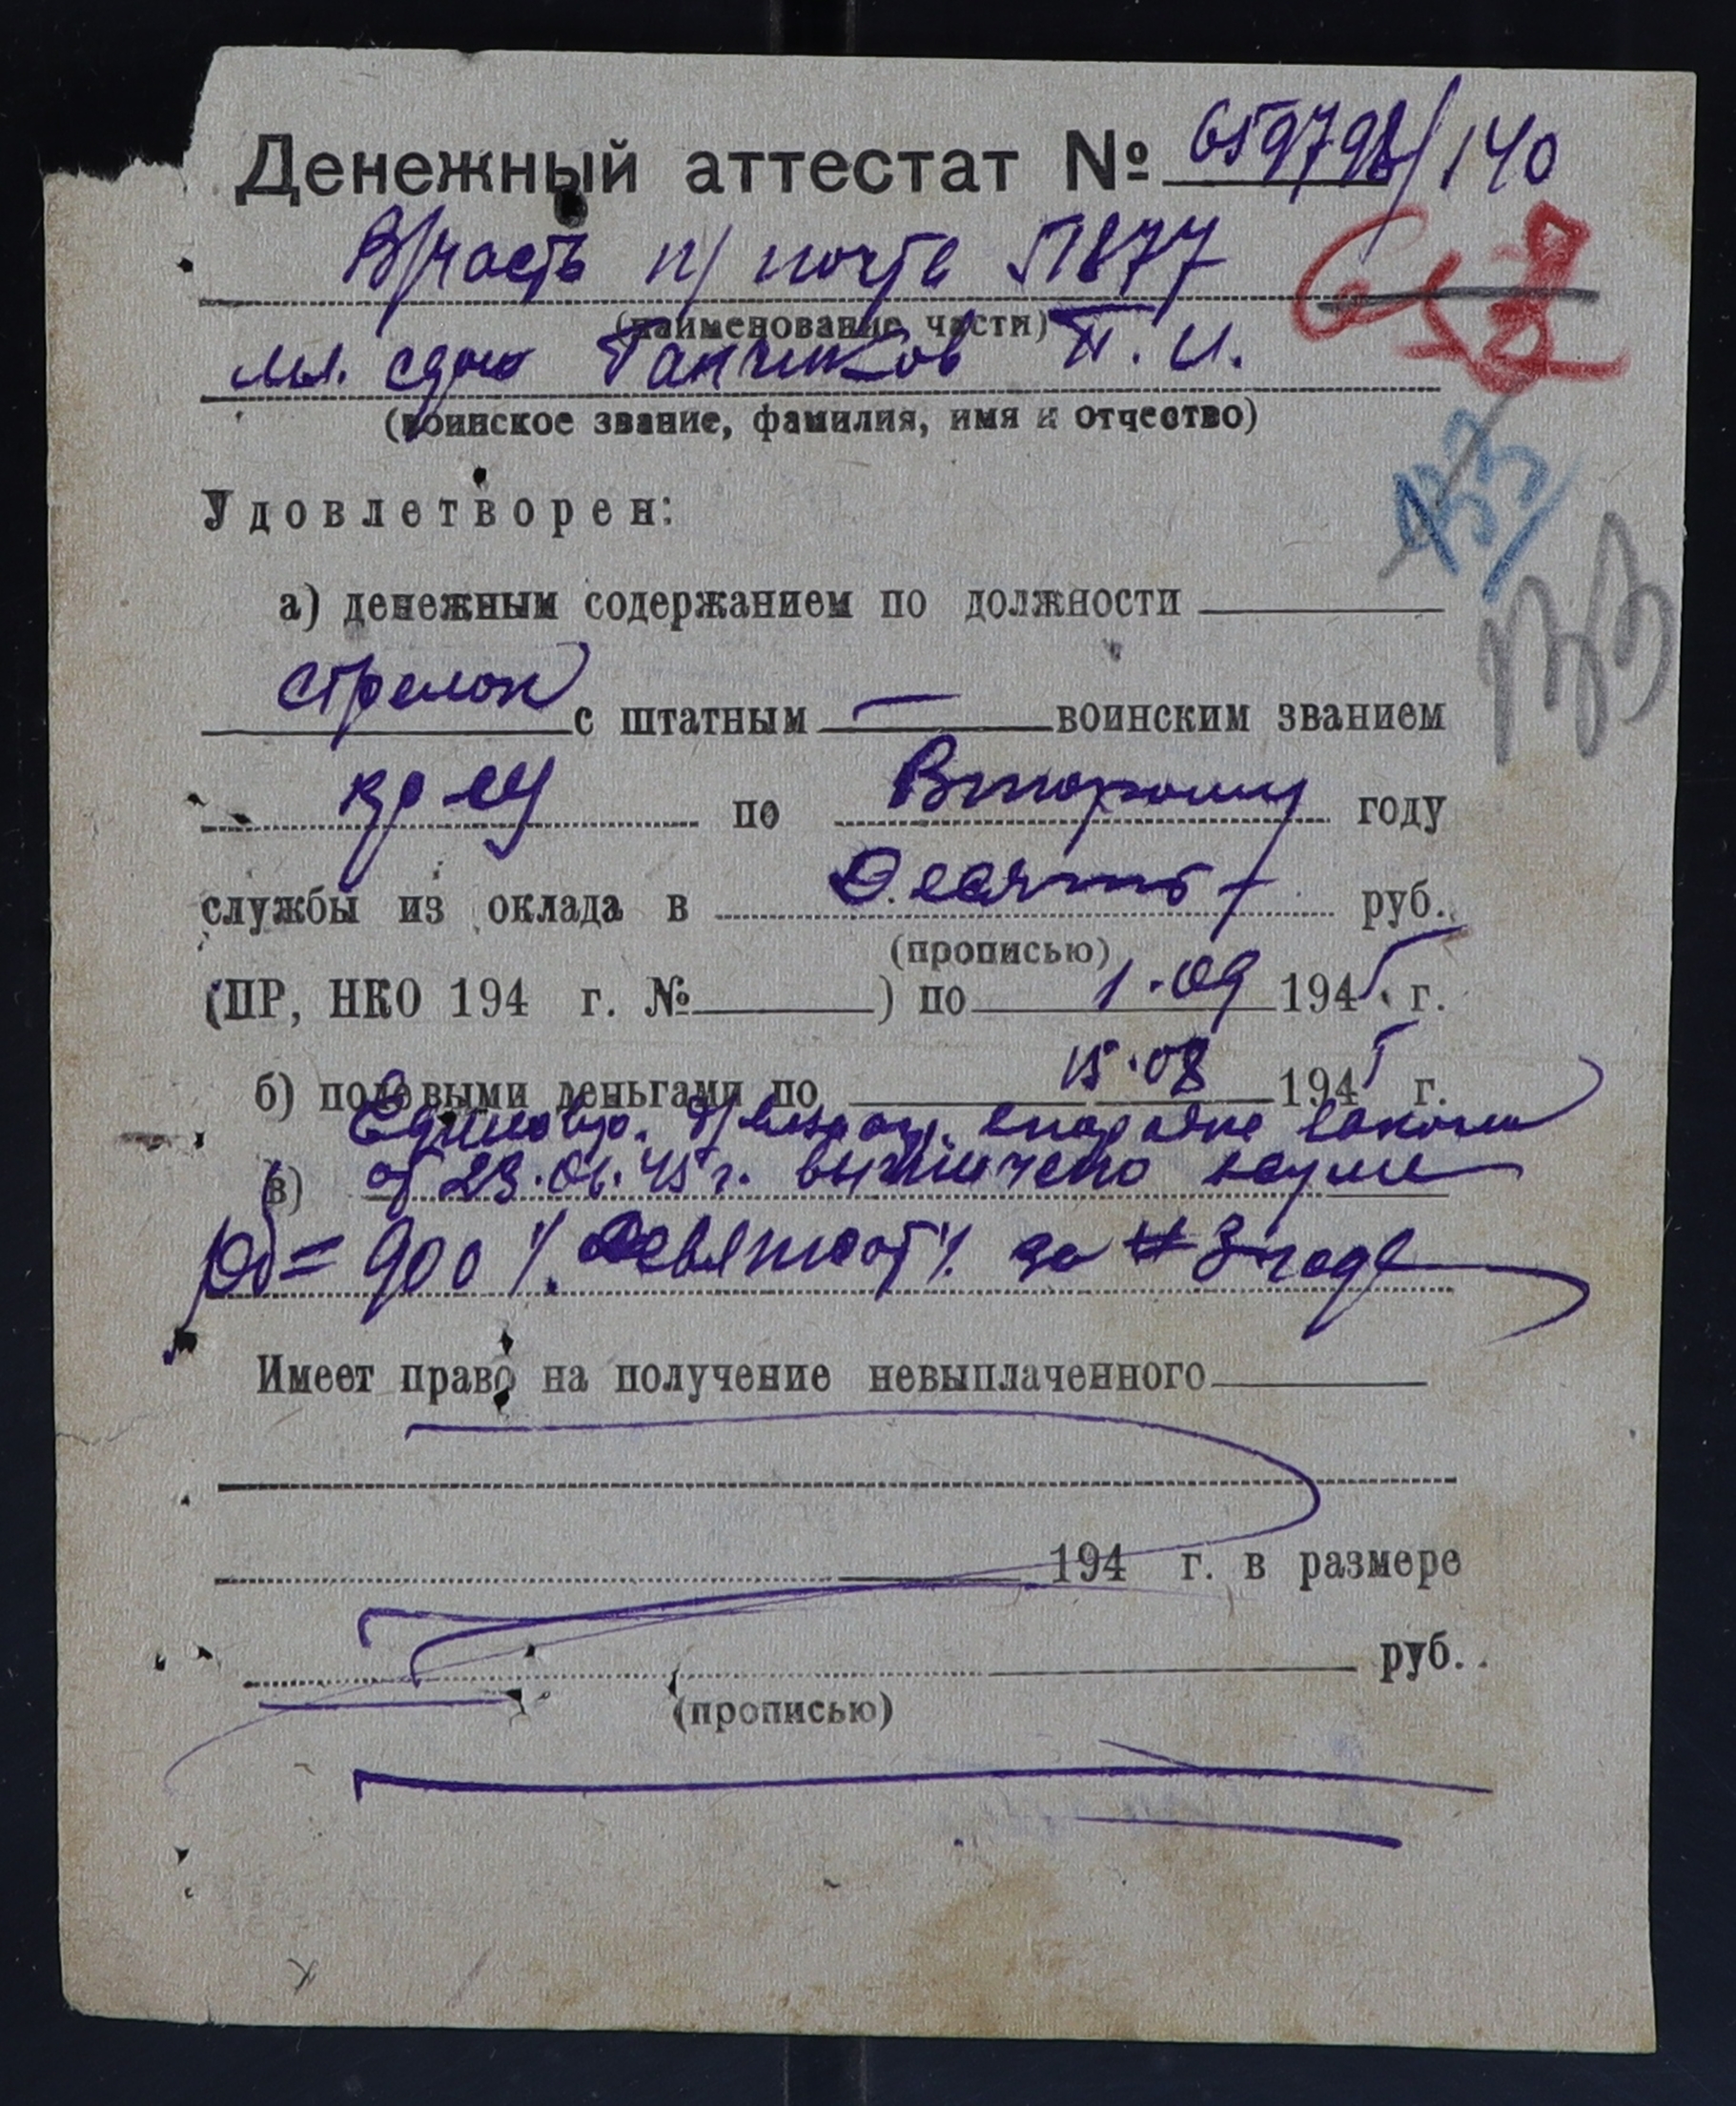 Денежный аттестат № 659798/140
В/часть п/ почте 51877
(наименование части)
мл. с-т Ганчиков П. И.
(воинское звание, фамилия, имя и отчество)
Удовлетворен:
а) денежным содержанием по должности
стрелок с штатным — воинским званием
кр-ец по Второму году
службы из оклада в Десять руб.
(прописью)
(ПР, НКО 194 г. № ) по 1.09 1945 г.
б) полевыми деньгами по 15.08 1945 г.
Единовр. д/ вознагр. в порядке закона
в) от 23.06.45 г. выплачено в сумме
руб = 900 /девятьсот/ за 3 года
Имеет право на получение невыплаченного
194 г. в размере
руб.
(прописью)